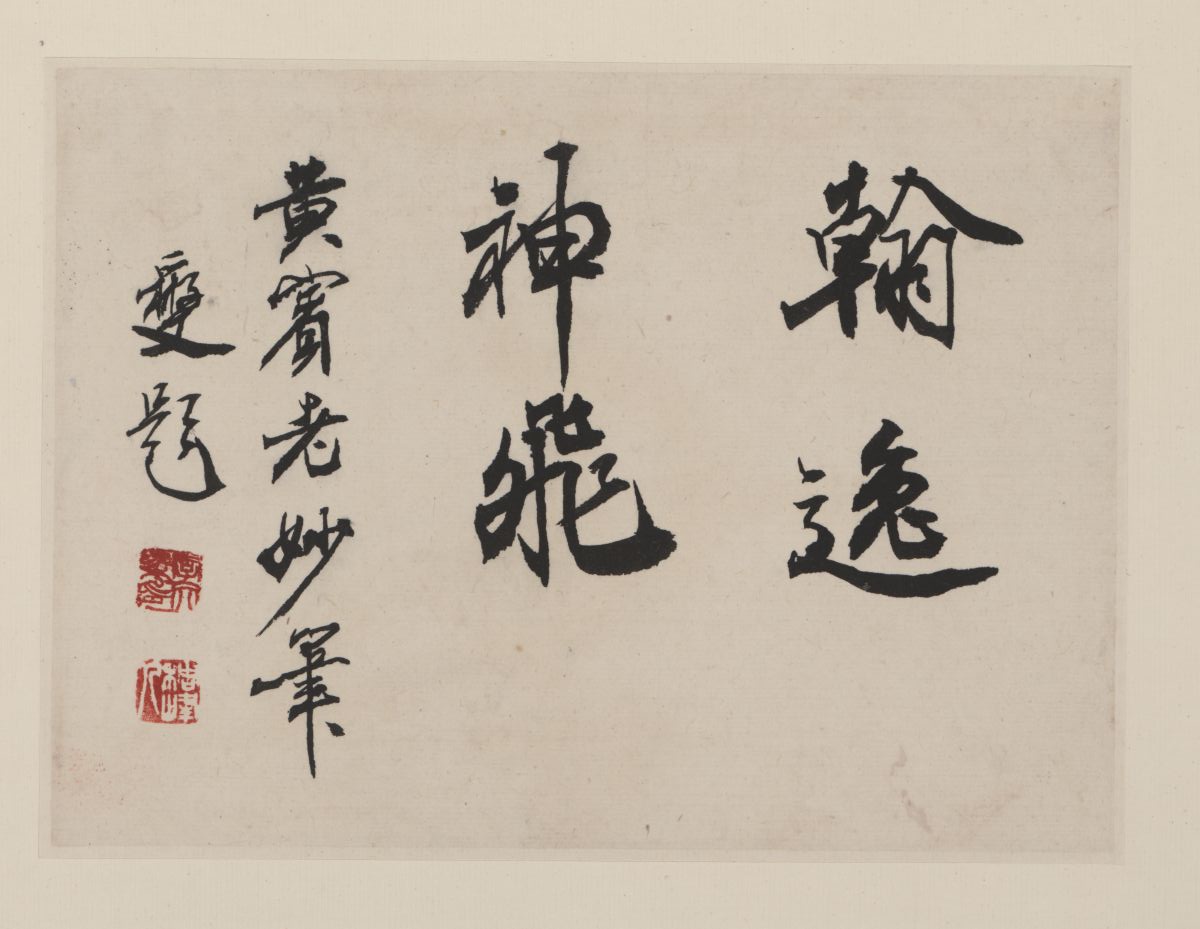 翰逸
神飛
黃賓老妙筆
題